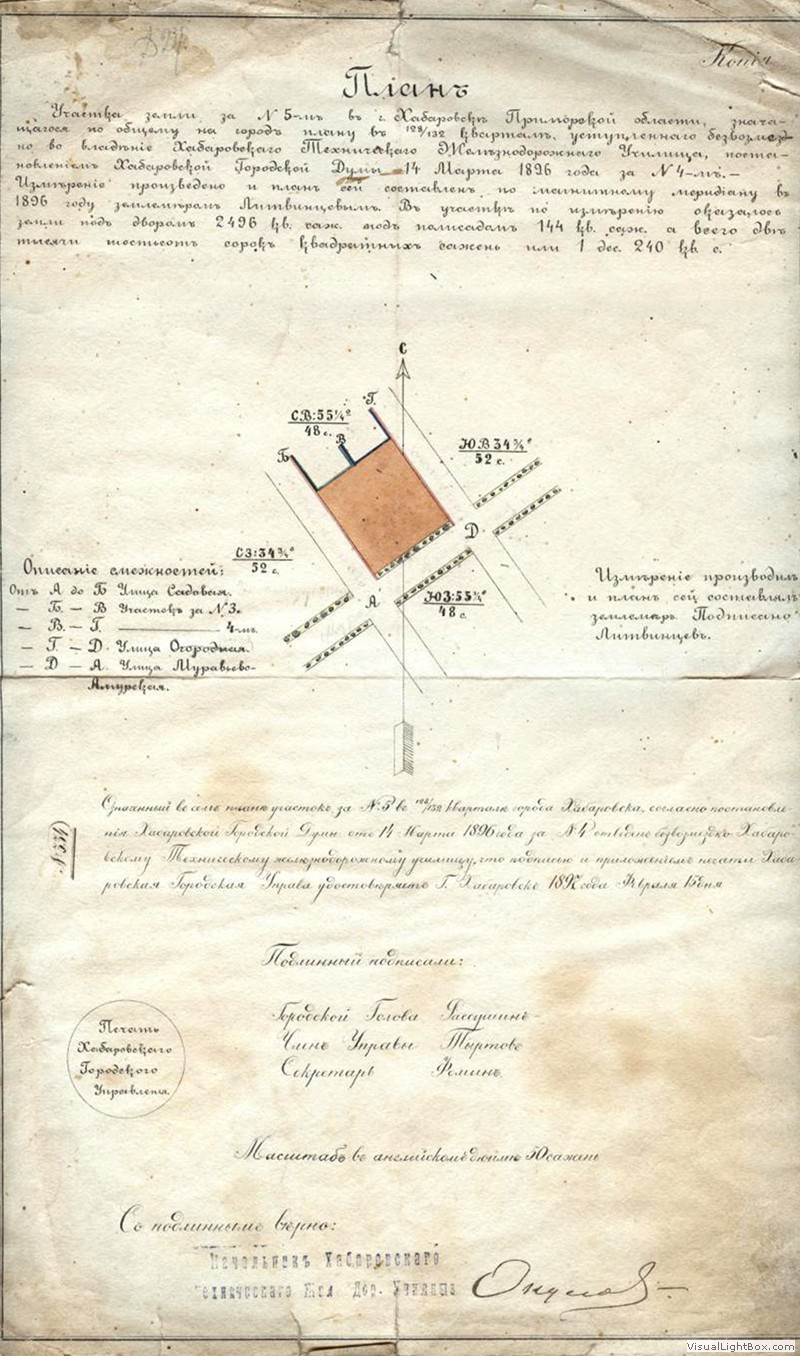 Копія
Планъ
Участка земли за N 5-мъ въ г. Хабаровскѣ Приморской области, значa-
щагося по общему на городъ плану въ 128/132 кварталѣ, уступленнаго безвозмезд-
но во владѣніе Хабаровскаго Техническаго Желѣзнодорожнаго Училища, поста-
новленіемъ Хабаровской Городской Думы 14 Марта 1896 года за N 4-мъ. –
Измѣреніе произведено и планъ сей составленъ по магнитному меридіану въ
1896 году землемѣромъ Литвинцевымъ. Въ участкѣ по измѣренію оказалось
земли подъ дворомъ 2496 кв. саж. подъ полисадомъ 144 кв. саж. а всего двѣ
тысячи шестьсотъ сорокъ квадратныхъ сажень или 1 дес. 240 кв. с.
С
Г.
С.В:55¼°
48 с.
В
Б
Ю.В 34¾°
52 с.
Д
СЗ:34¾°
52 с.
А
ЮЗ:55¼°
48 с.
Описаніе смежностей:
Отъ А до Б Улица Садовая.
— Б. — В Участокъ за N 3.
— В. — Г. ——— 4-мъ.
— Г. — Д. Улица Огородная.
— Д — А. Улица Муравьево-
Амурская.
Измѣреніе производилъ
и планъ сей составлялъ
землемѣръ Подписано
Литвинцевъ.
Означенный въ семъ планѣ участокъ за N 5 въ 128/132 кварталѣ города Хабаровска, согласно постановле-
нія Хабаровской Городской Думы отъ 14 Марта 1896 года за N 4 отведенъ безвозмездно Хабаро-
вскому Техническому желѣзнодорожному училищу, что подписью и приложеніемъ печати Хаба-
ровская Городская Управа удостовѣряетъ Г. Хабаровскъ 1897 года Февраля 15 дня
Подлинный подписали:
Городской Голова Рассушинъ
Членъ Управы Тыртовъ
Секретарь Фоминъ.
Печать
Хабаровскаго
Городского
Управленія.
Масштабъ въ англійскомъ дюймѣ 50 сажень
Съ подлиннымъ вѣрно:
Начальникъ Хабаровскаго
Техническаго Жел. Дор. Училища
VisualLightBox.com